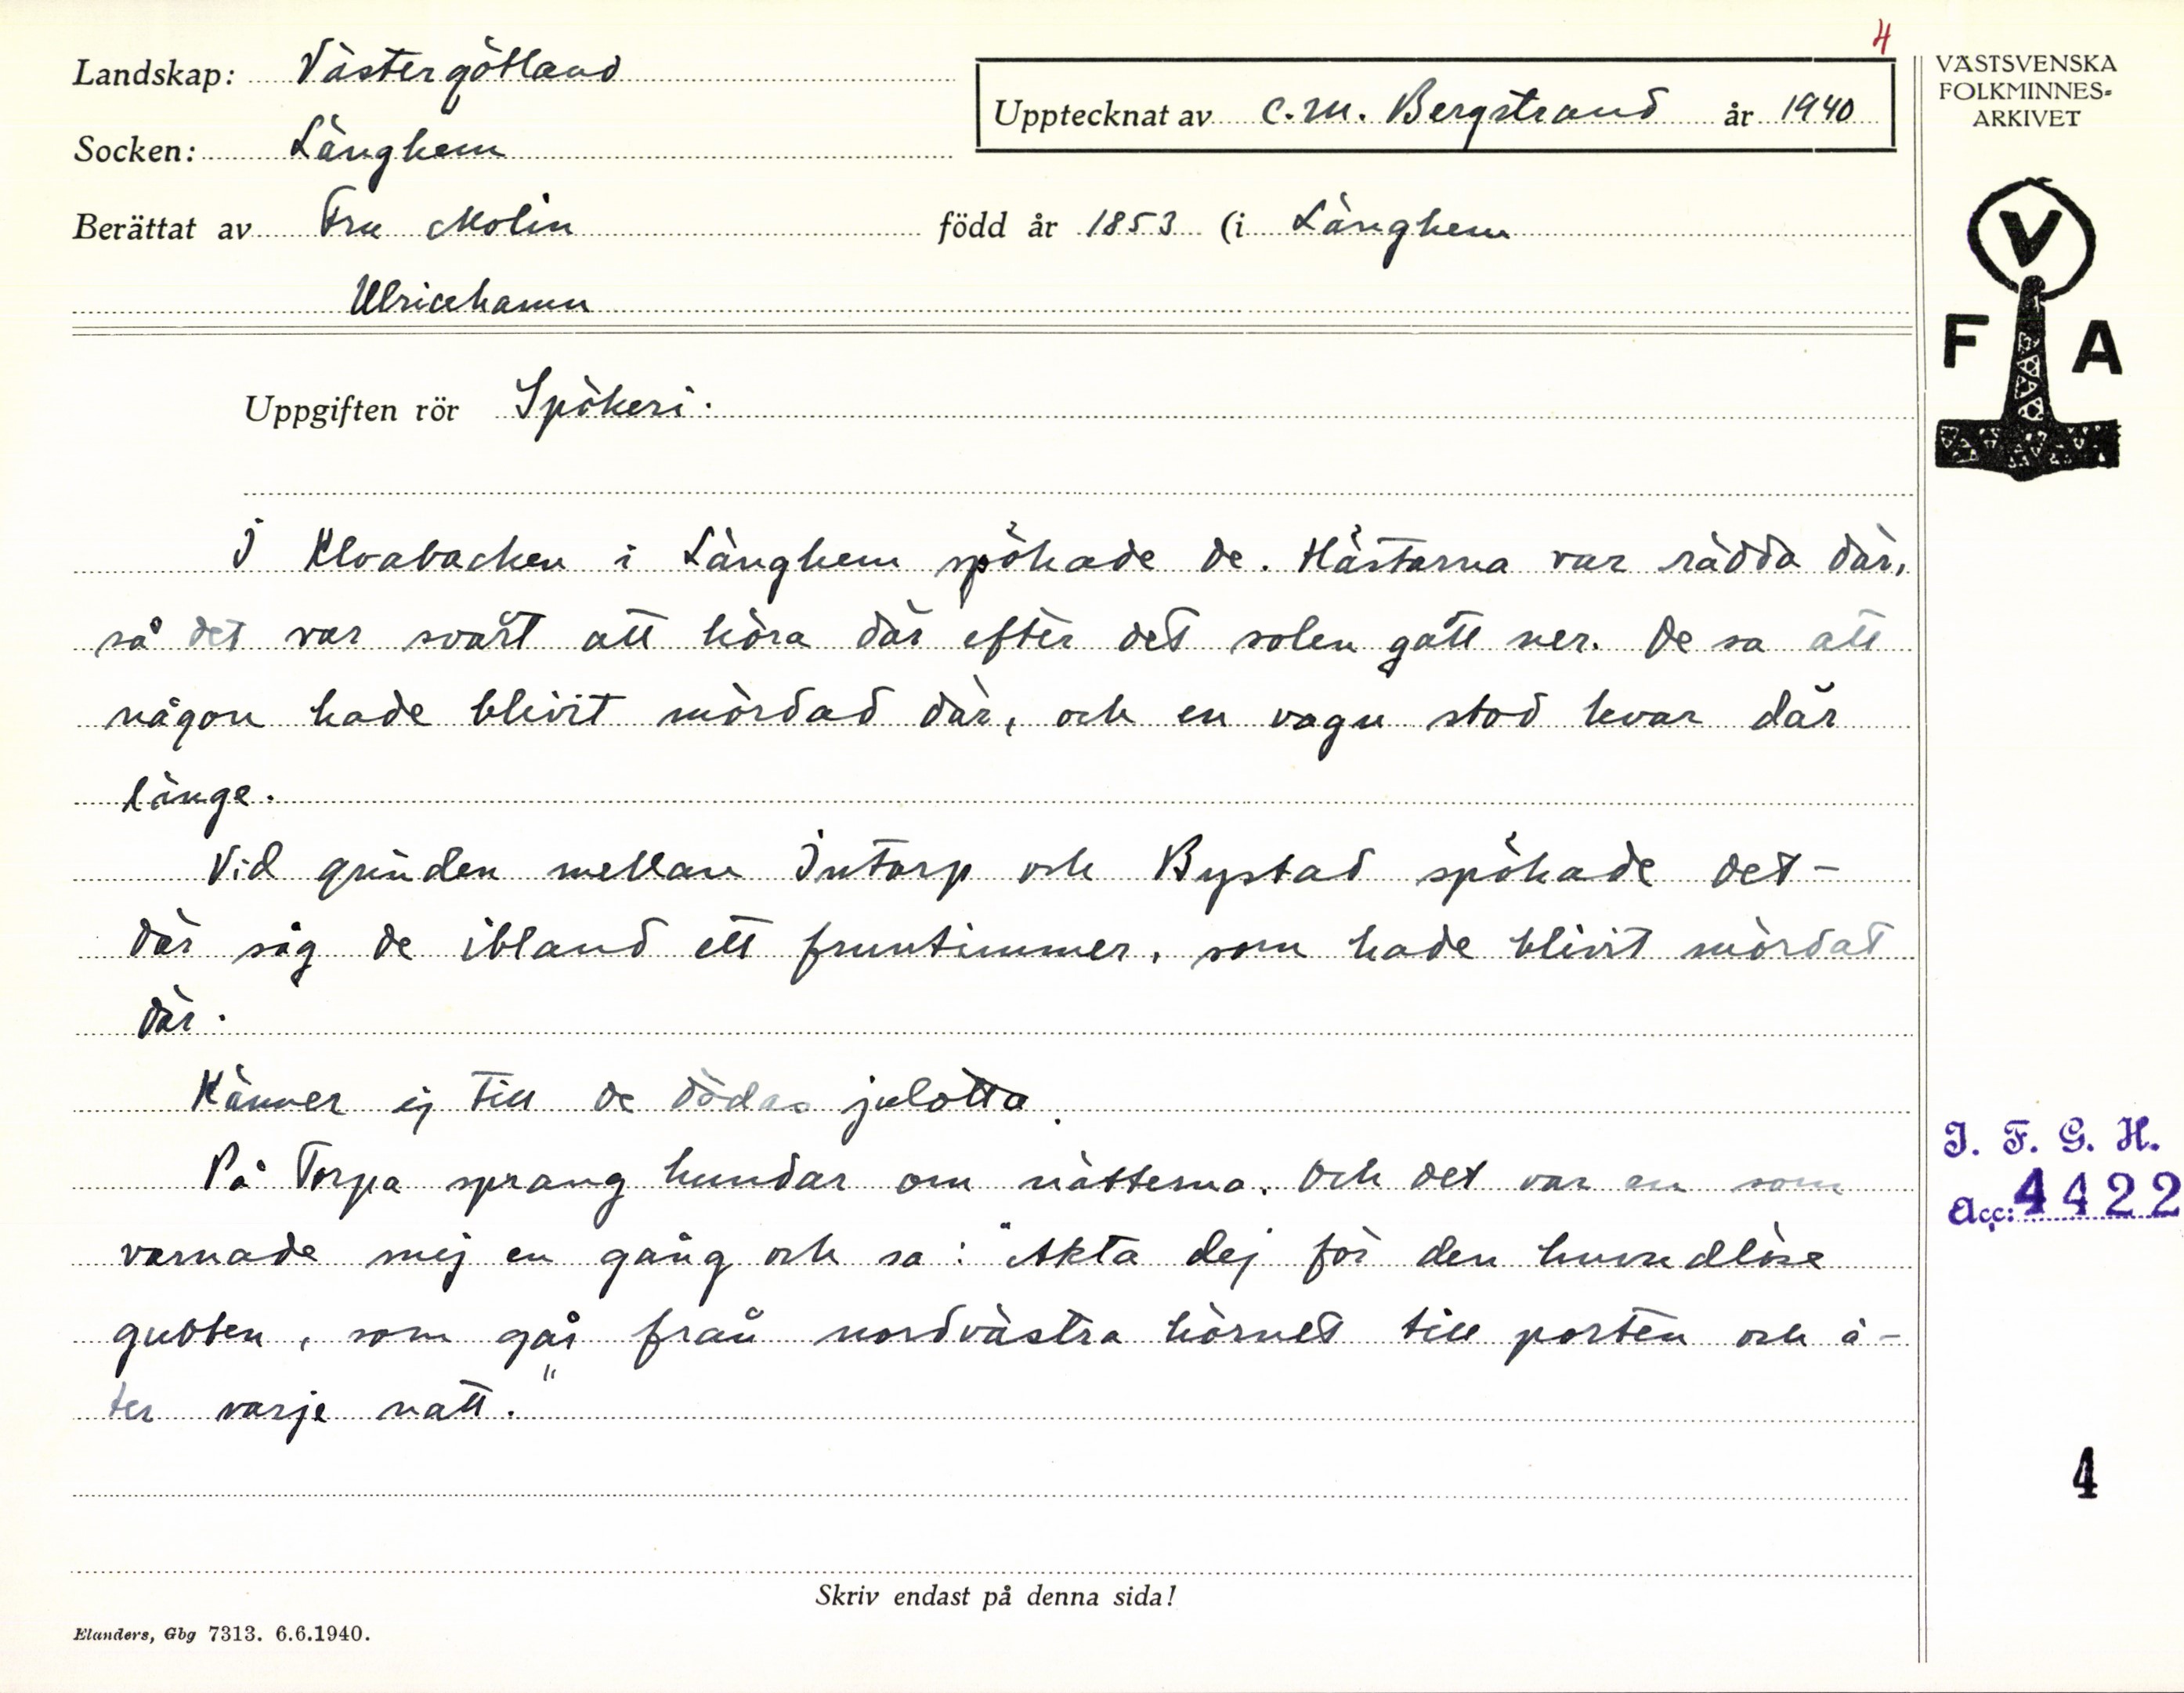 4
Landskap: Västergötland
Upptecknat av C.M. Bergstrand år 1940
Socken: Länghem
Berättat av Fru Molin född år 1853 (i Länghem
Ulricehamn
VÄSTSVENSKA
FOLKMINNES-
ARKIVET
V
F A
Uppgiften rör Spökeri.
I Klvabacken i Länghem spökade de. Hästarna var rädda där,
så det var svårt att köra där efter det solen gått ner. De sa att
någon hade blivit mördad där, och en vagn stod kvar där
länge.
Vid grinden mellan Intorp och Bystad spökade det -
där såg de ibland ett fruntimmer, som hade blivit mördat
där.
Känner ej till de dödas julotta.
På Torpa sprang hundar om nätterna. Och det var en som
varnade mej en gång och sa: "Akta dej för den huvudlöse
gubben, som går från nordvästra hörnet till porten och å-
ter varje natt."
I. F. G. H.
Acc: 4422
4
Skriv endast på denna sida!
Elanders, Gbg 7313. 6.6.1940.